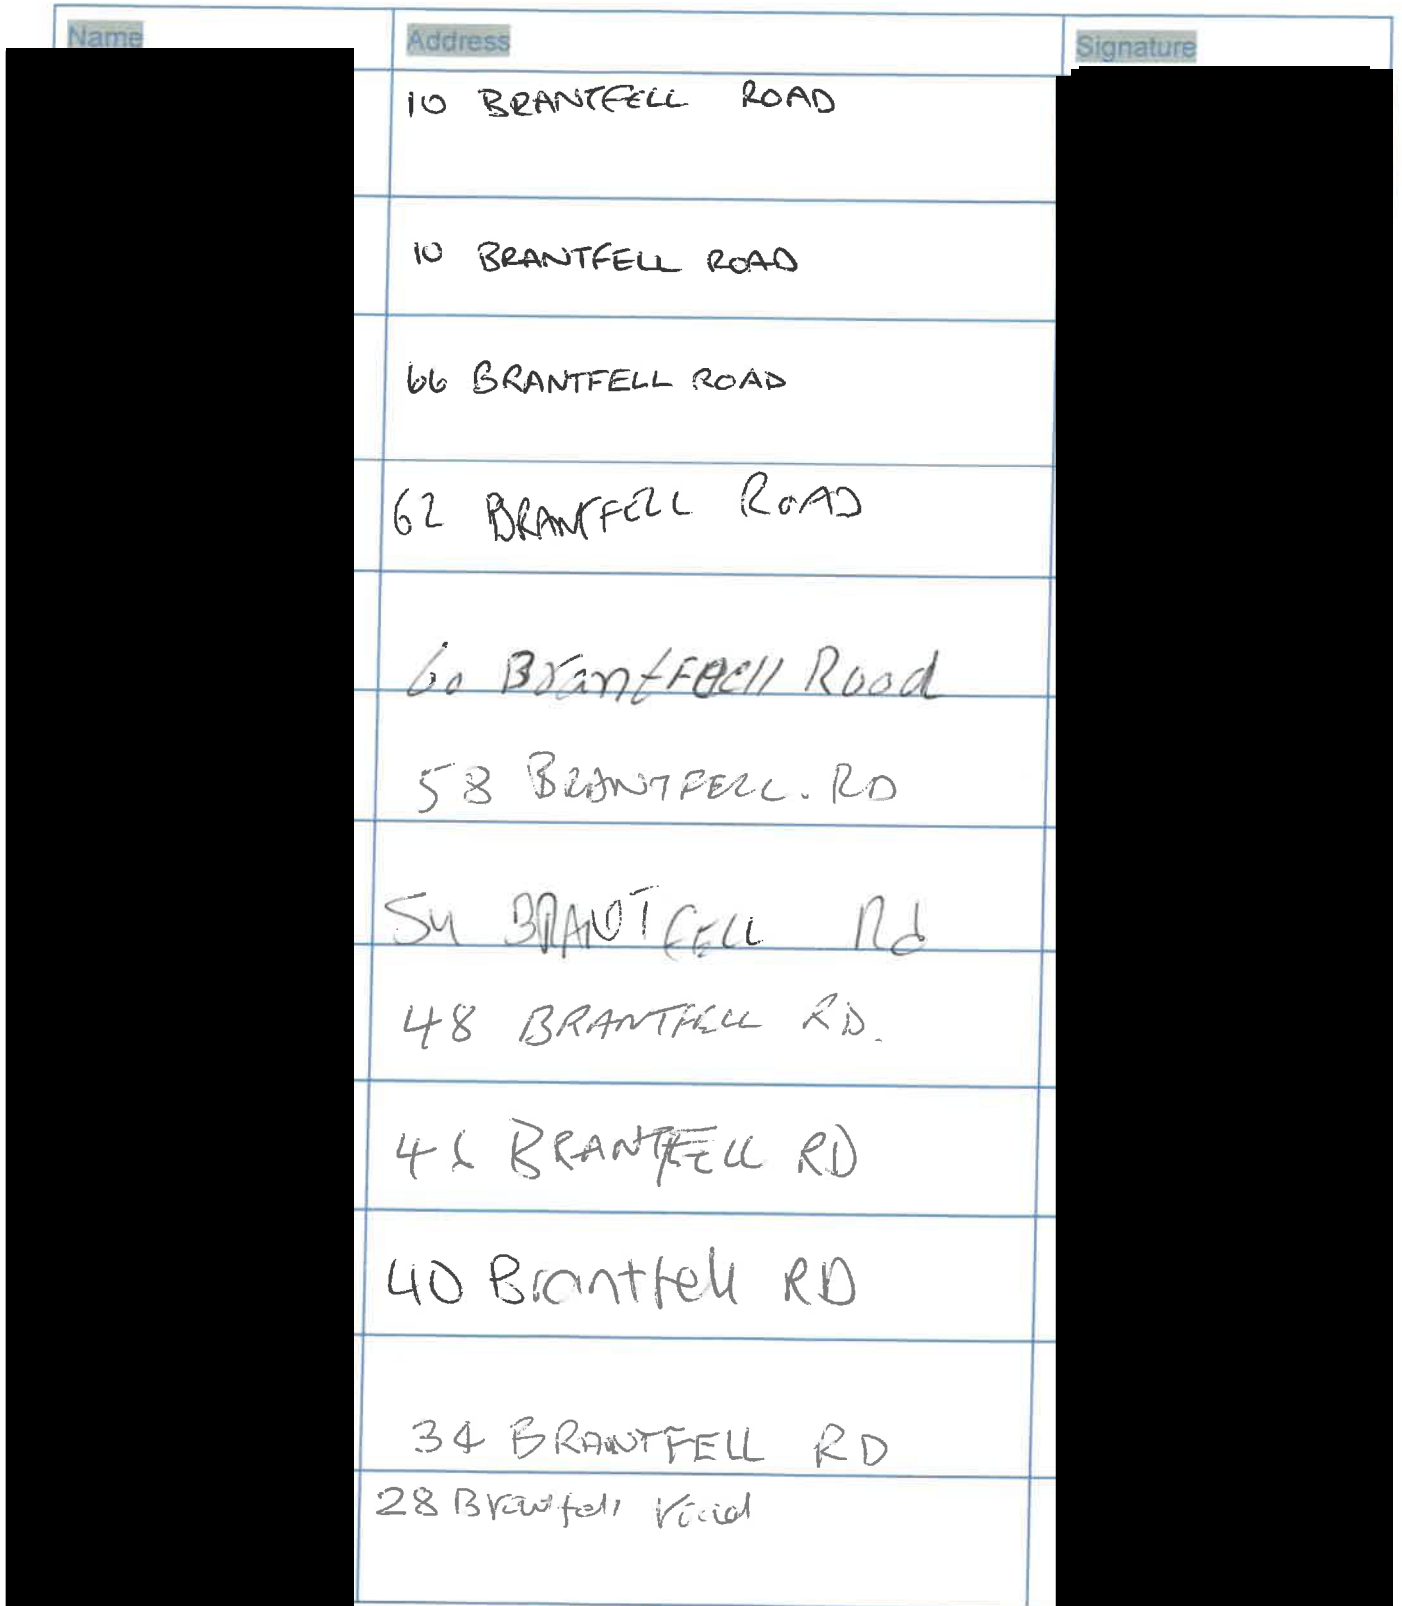 Name Address Signature
10 BRANTFELL ROAD
10 BRANTFELL ROAD
66 BRANTFELL ROAD
62 BRANTFELL ROAD
60 Brantfell Road
58 BRANTFELL. RD
54 BRANTFELL Rd
48 BRANTFELL RD.
46 BRANTFELL RD
40 Brantfell RD
34 BRANTFELL RD
28 Brantfell road